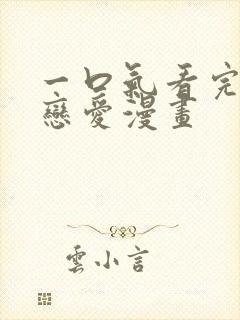 一口氣看完
戀愛漫畫
雲小言